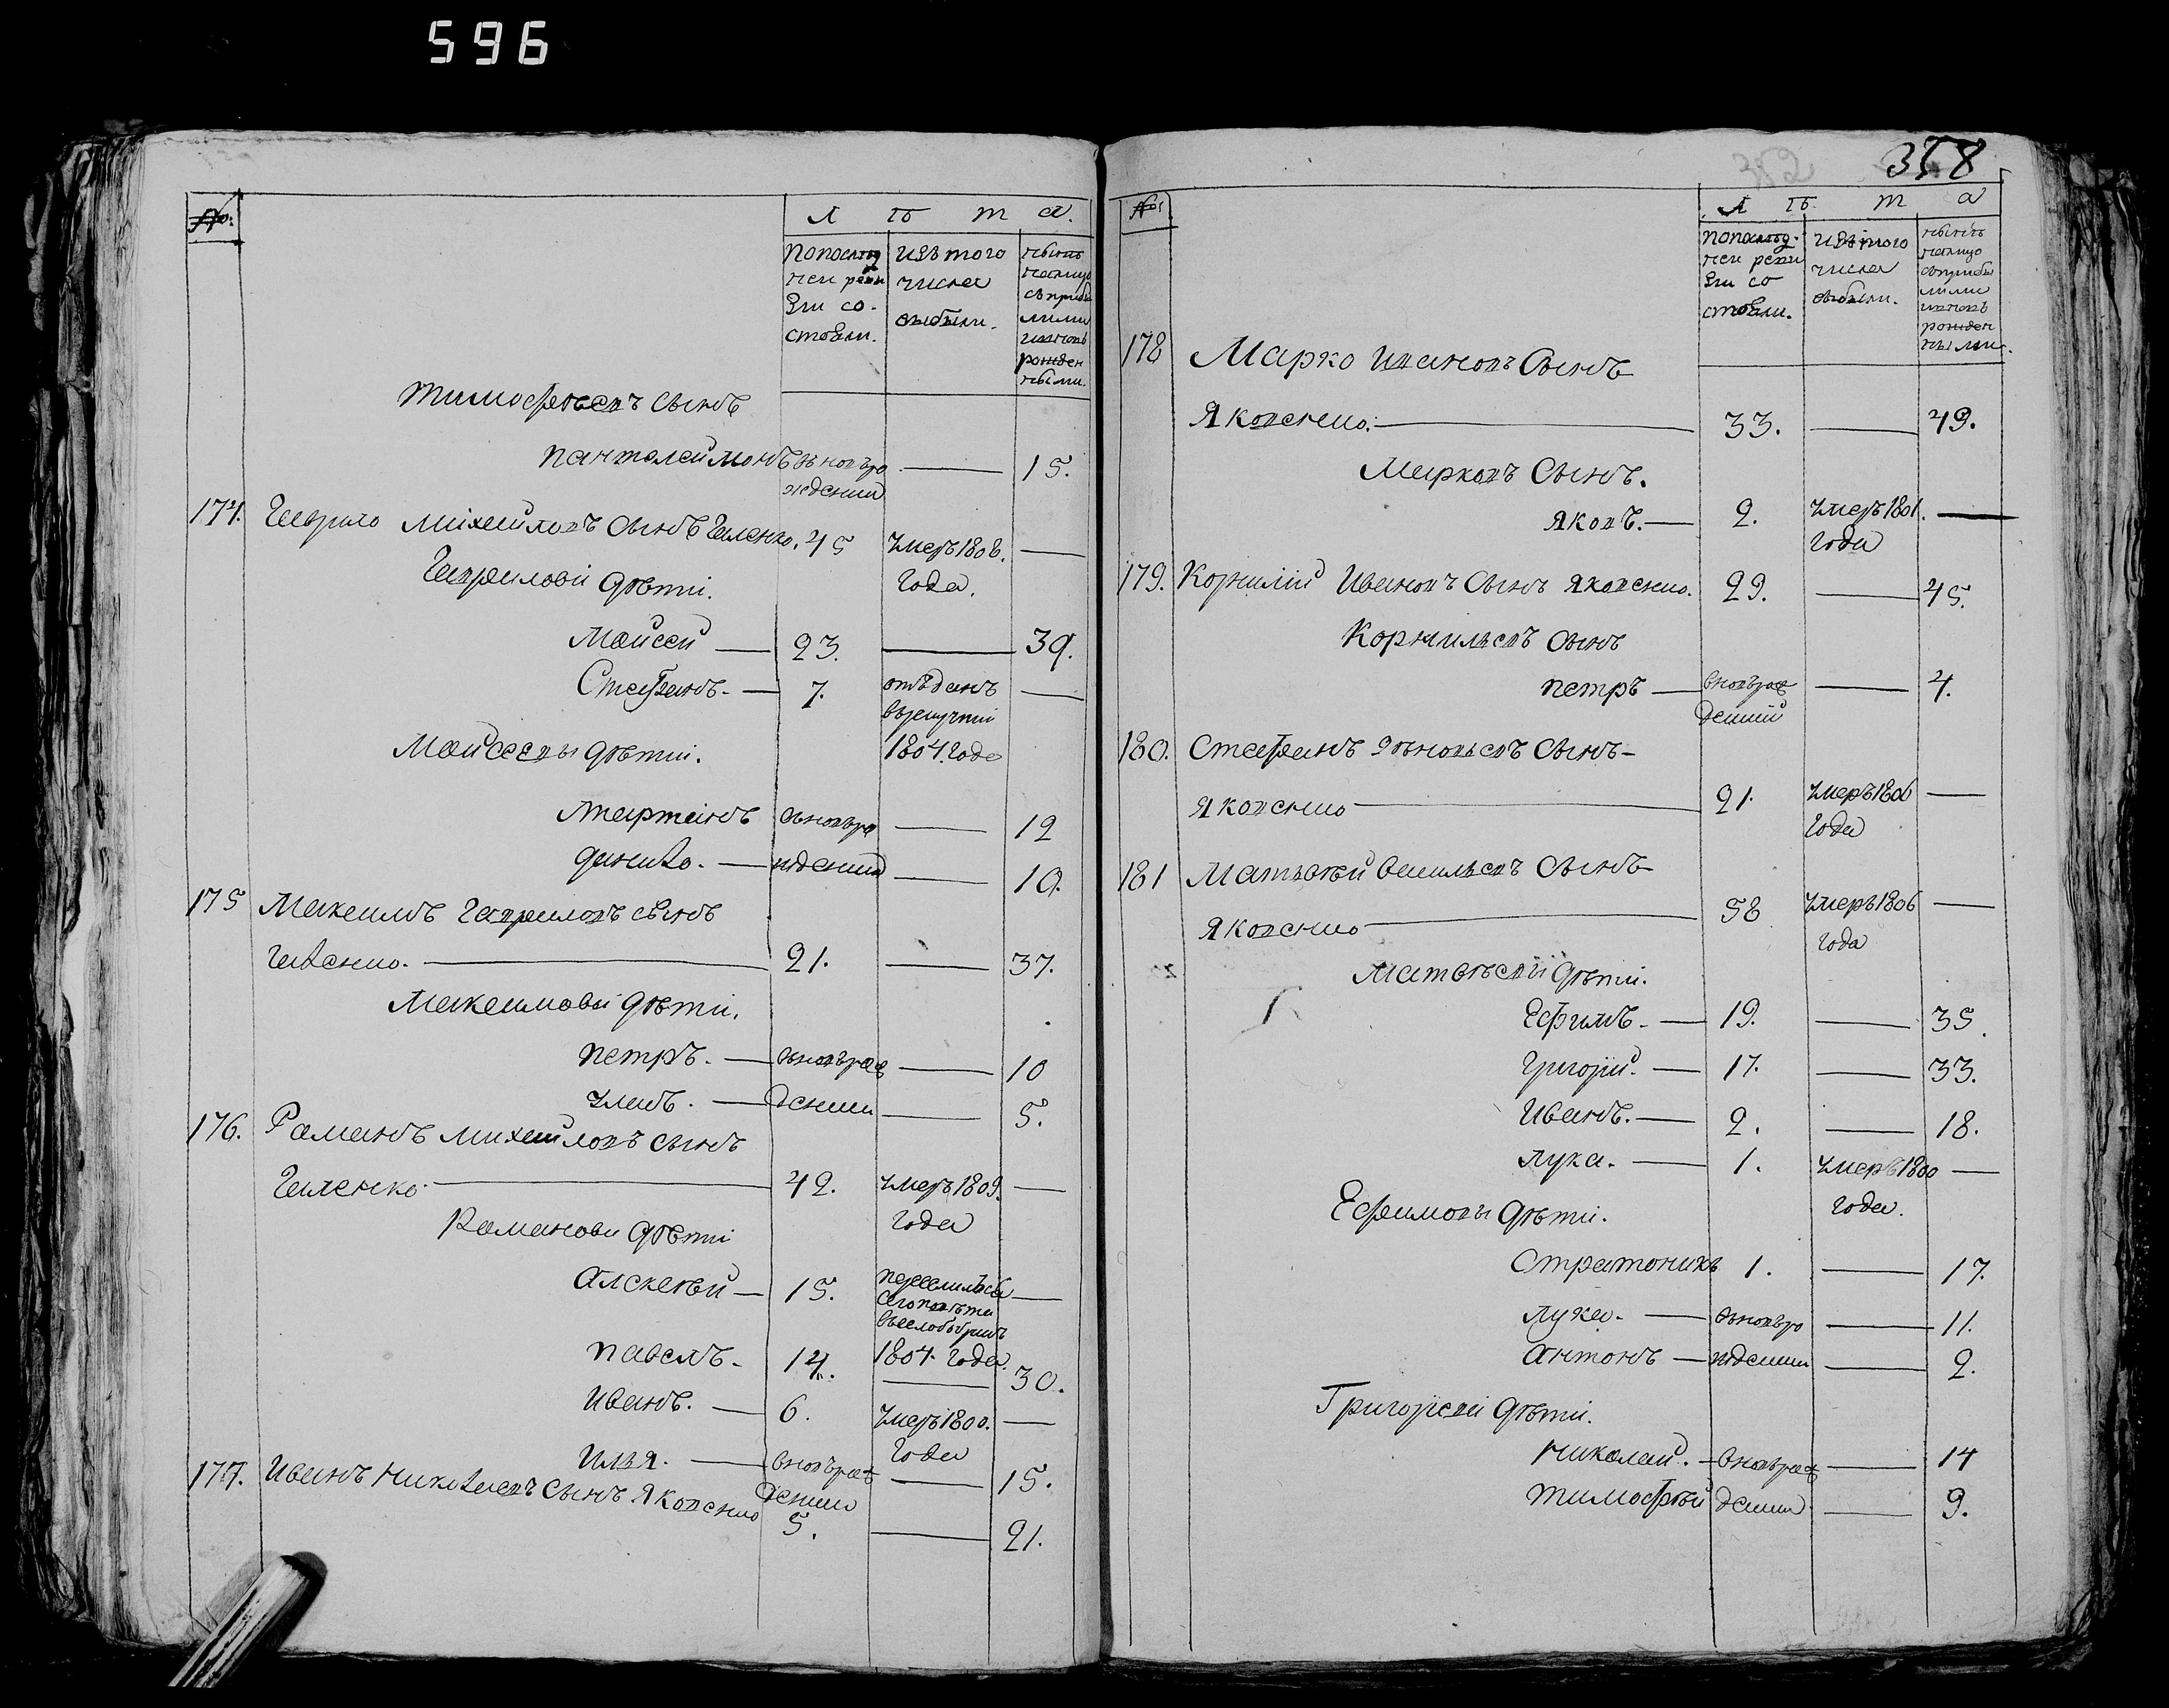 596
№.
Л ѣ т а.
Попослѣд
ней реви
зіи со-
стояли.
изъ того
числа
выбыли.
нынѣ
налицо
съприбы
лыми
иновь
рожден
ными.
Тимофѣевъ сынъ
Пантелеймонъ вновьро
ждений — 15.
174. Гаврило Михайловъ сынъ Галенко. 45 умеръ 1808. —
года.
Гавриловы дѣти.
Мойсей — 23. — 39.
Стефанъ. — 7. отъданъ —
врекруты
1804. года
Мойсеевы дѣти.
Мартинъ вновьро — 12
Данило. — жденій — 10.
175 Максимъ Гавриловъ сынъ
Галенко. — 21. — 37.
Максимовы дѣти.
Петръ. — вновьрож — 10
Улиъ. — дении — 5.
176. Романъ Михайловъ сынъ
Галенко — 42. умеръ 1809. —
года
Романовы дѣти
Алексѣй — 15. переселился —
1804. года.
Павелъ. 14. — 30.
Иванъ. — 6. умеръ 1800. —
года
Илья. — вновьрож — 15.
дении
177. Иванъ Николаевъ сынъ Яковенко 5. — 21.
352
358
№:
Л ѣ т а
Попослѣд-
ней реви
зіи со
стояли.
изътого
числа
выбыли.
нынѣ
налицо
съприбы
лыми
иновь
рожден
ными.
178 Марко Ивановъ Сынъ
Яковенко. — 33. — 49.
Марковъ Сынъ.
Яковъ. — 2. умеръ 1801. —
года
179. Корнилій Ивановъ Сынъ Яковенко. 29. — 45.
Корнильевъ Сынъ
Петръ — вновьрож — 4.
деній
180. Стефанъ Сынъ —
Яковенко — 21. умеръ 1806 —
года
181 Матьвѣй Васильевъ Сынъ
Яковенко — 58 умеръ 1806 —
года
Матвѣевы дѣти.
Ефимъ. — 19. — 35.
Григорій. — 17. — 33.
Иванъ. — 2. — 18.
Лука. — 1. умеръ 1800 —
года.
Ефимовы дѣти.
Стратоникъ 1. — 17.
Лука. — вновьро — 11.
Антонъ — ждении — 2.
Григорьевы дѣти.
Николай. — вновьрож — 14
Тимофѣй дении — 9.